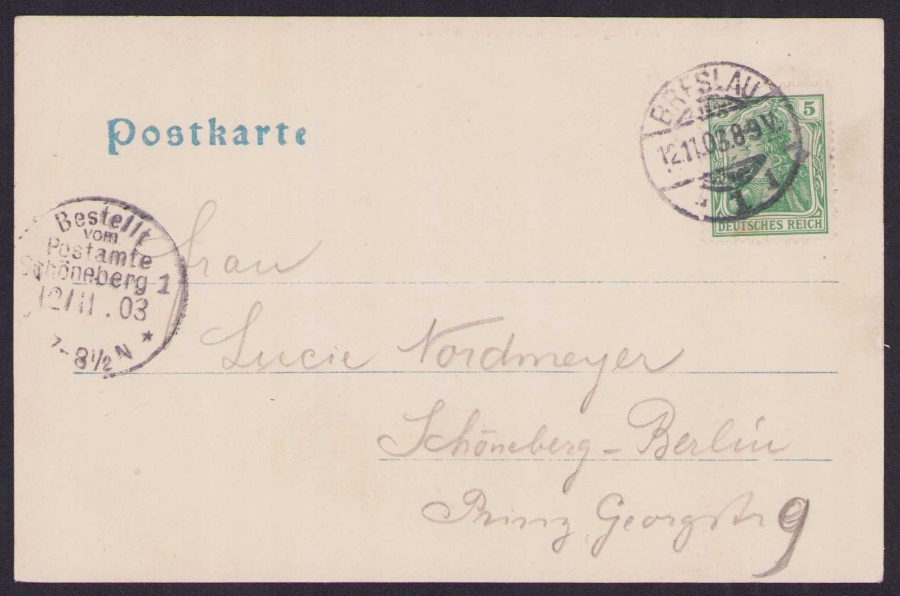 Postkarte
BRESLAU
12.11.03.8-9V.
* 1 1
5
DEUTSCHES REICH
Bestellt
vom
Postamte
Schöneberg 1
12/11.03
7-8½N *
Frau
Lucie Nordmeyer
Schöneberg-Berlin
Prinz Georgstr 9